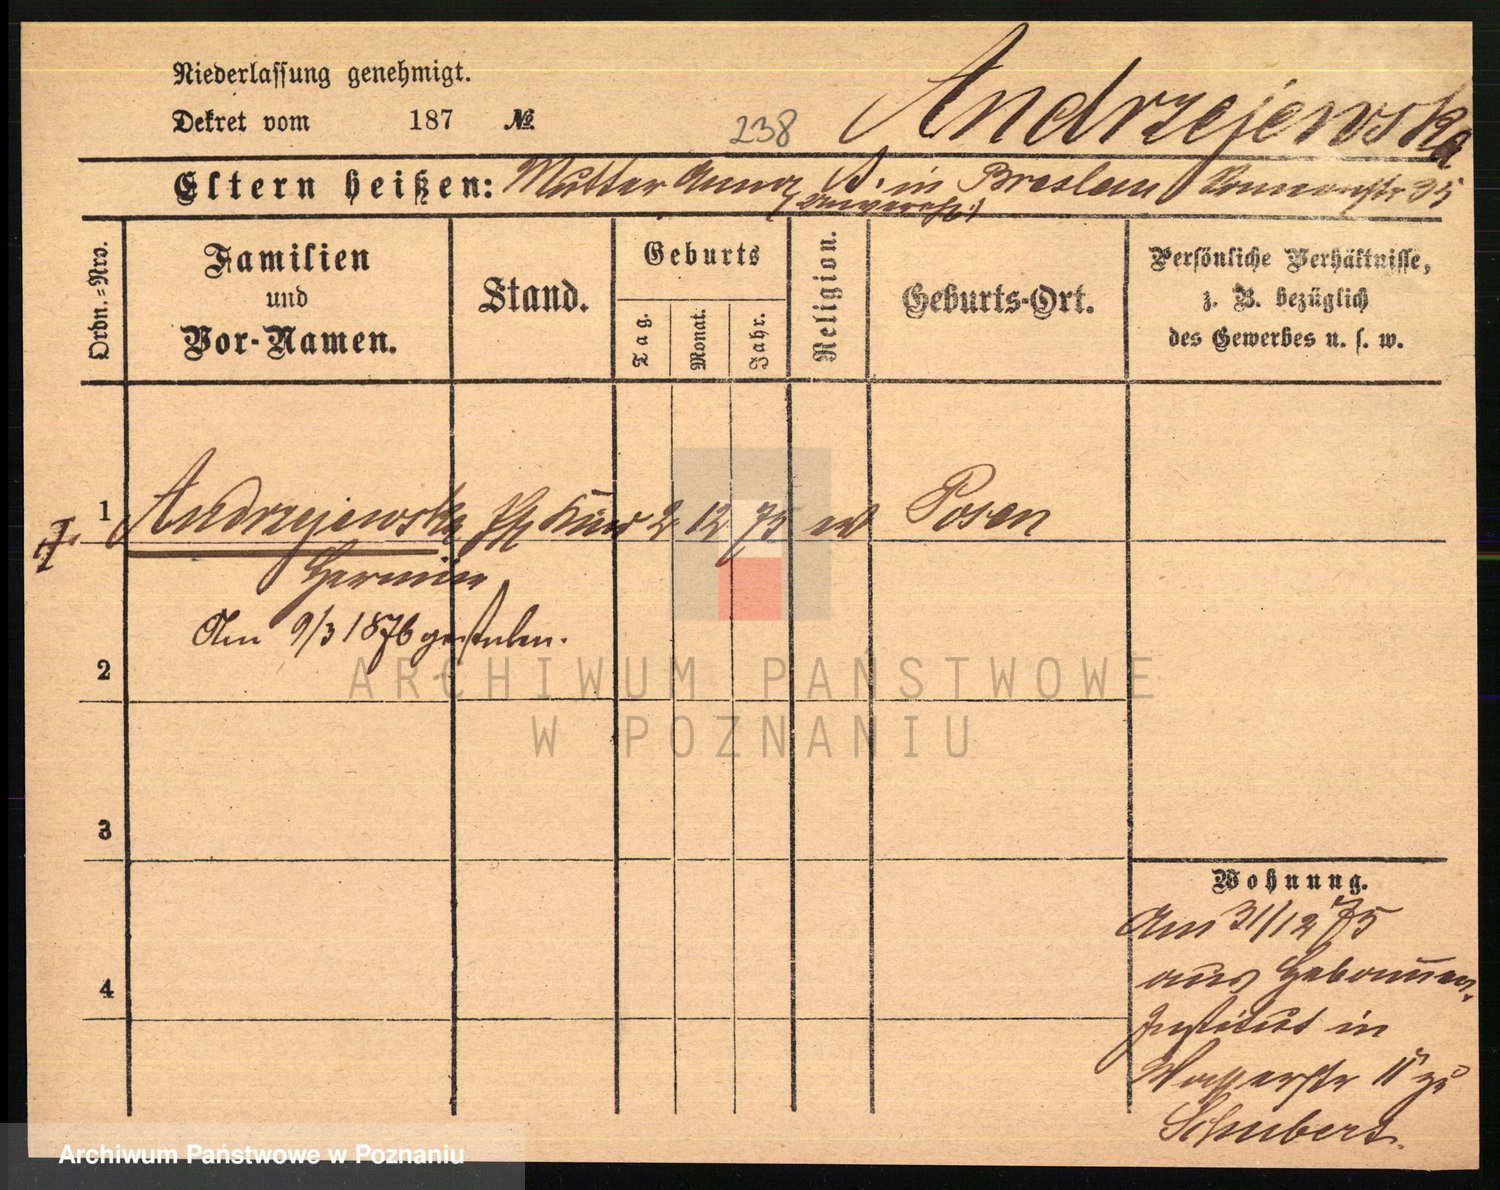 Niederlassung genehmigt.
Dekret vom 187 №
238
Andrzejewska
Eltern heißen: Mutter Anna A. in Breslau 35
(unverehl.)
Ordn.-Nro.
Familien
und
Vor-Namen.
Stand.
Geburts
Tag.
Monat.
Jahr.
Religion.
Geburts-Ort.
Persönliche Verhältnisse,
z. B. bezüglich
des Gewerbes u. s. w.
1 Andrzejewska Kind 2 12 75 ev Posen
Hermine
Am 9/3 1876 gestorben.
2
3
4
Wohnung.
Am 31/12 75
aus Hebammen-
Institut in
Wasserstr 11 zu
Schubert.
ARCHIWUM PAŃSTWOWE
W POZNANIU
Archiwum Państwowe w Poznaniu